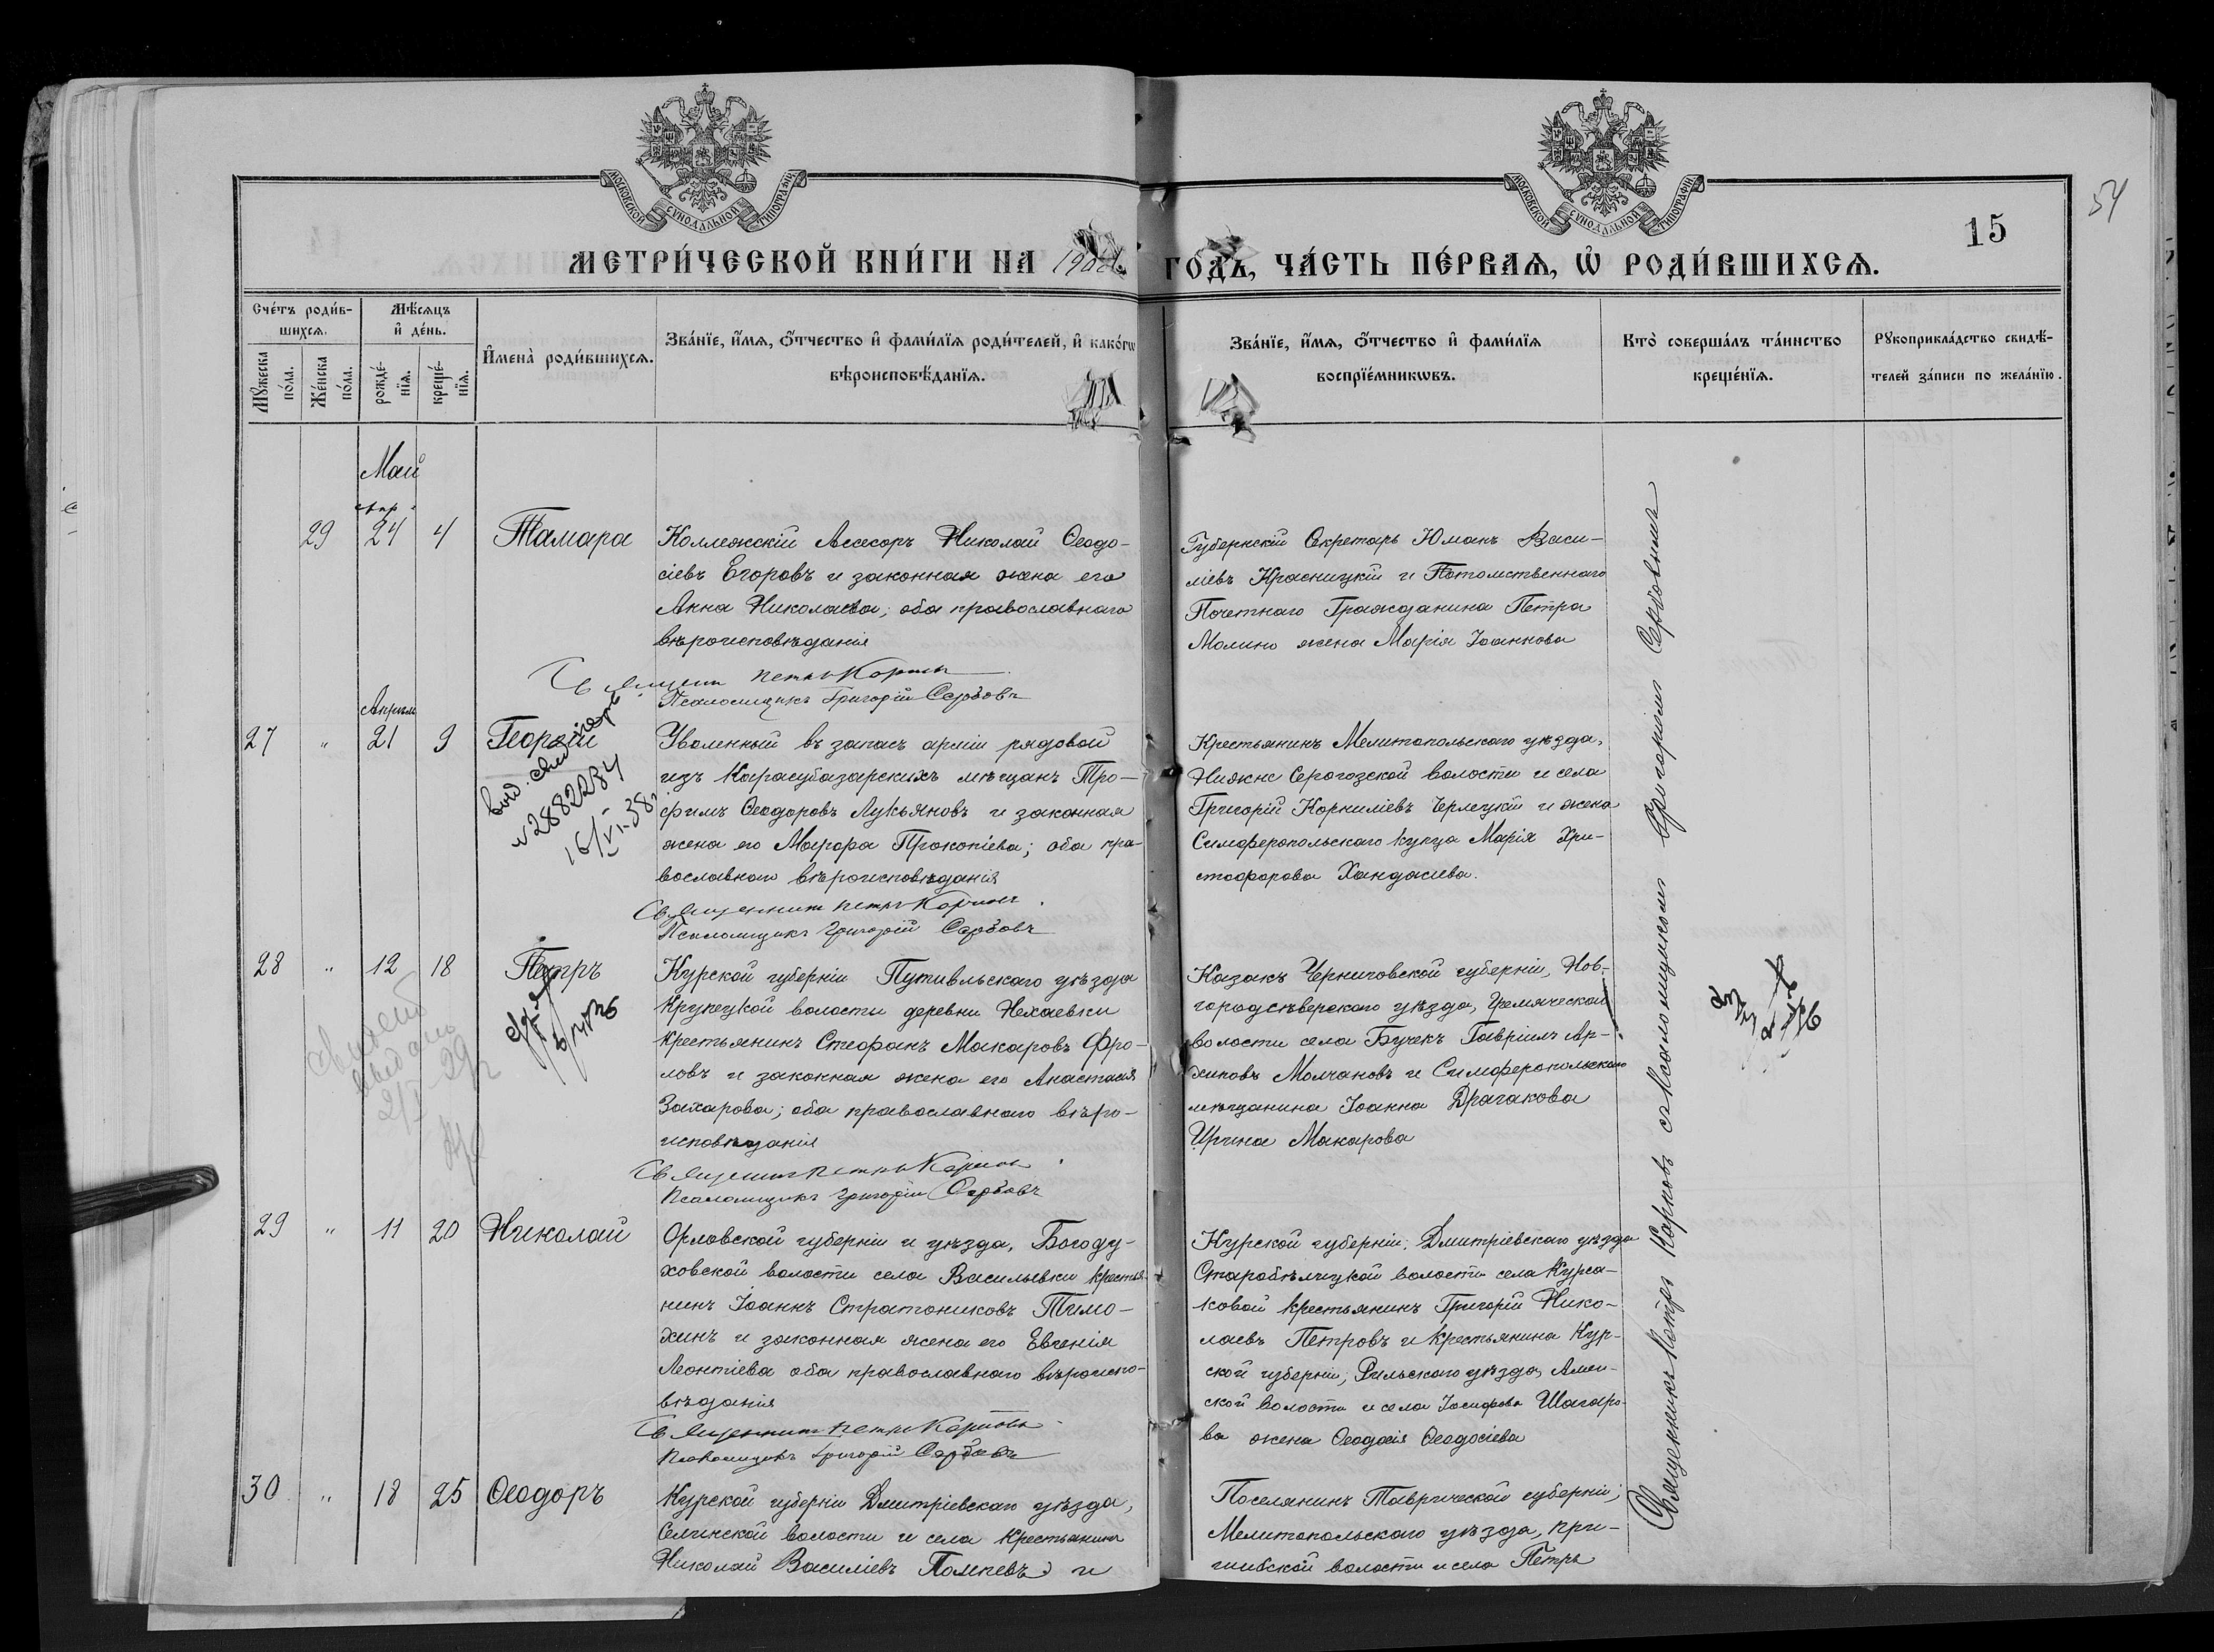 МОСКОВСКОЙ СѴНОДАЛЬНОЙ ТИПОГРАФІИ
МОСКОВСКОЙ СѴНОДАЛЬНОЙ ТИПОГРАФІИ
54
15
МЕТРИ́ЧЕСКОЙ КНИ́ГИ НА
ГОДЪ, ЧА́СТЬ ПЕ́РВАѦ, Ѡ҆ РОДИ́ВШИХСѦ.
Сче́тъ роди́в-
шихсѧ.
Мꙋ́жеска
по́ла.
Же́нска
по́ла.
Мѣ́сѧцъ
и҆ де́нь.
рожде́-
нїѧ.
креще́-
нїѧ.
И҆мена̀ роди́вшихсѧ.
Зва́нїе, и҆́мѧ, ѻ҆́тчество и҆ фами́лїѧ роди́телей, и҆ како́гѡ
вѣроисповѣ́данїѧ.
Зва́нїе, и҆́мѧ, ѻ҆́тчество и҆ фами́лїѧ
воспрїе́мникѡвъ.
Кто̀ соверша́лъ та́инство
креще́нїѧ.
Рꙋкоприкла́дство свидѣ́-
телей за́писи по жела́нїю.
Май
апр
29 24 4 Тамара
Коллежскій Ассесоръ Николай Ѳеодо-
сіевъ Егоровъ и законная жена его
Анна Николаева; оба православнаго
вѣроисповѣданія
Священникъ Петръ
Псаломщикъ Григорій Сербовъ
Губернскій Секретарь Юманъ Васи-
ліевъ Красницкій и Потомственнаго
Почетнаго Гражданина Петра
Молино жена Марія Іоаннова
Апрѣль
27 " 21 9 Георгій
№ 2882234
16/VI-38
Уволенный въ запасъ арміи рядовой
изъ Карасубазарскихъ мѣщанъ Тро-
фимъ Ѳеодоровъ Лукьяновъ и законная
жена его Марѳа Прокопіева; оба пра-
вославнаго вѣроисповѣданія
Священникъ Петръ
Псаломщикъ Григорій Сербовъ
Крестьянинъ Мелитопольскаго уѣзда,
Нижне Серогозской волости и села
Григорій Корниліевъ Черлецкій и жена
Симферопольскаго купца Марія Хри-
стофорова Хандасіева.
28 " 12 18 Петръ
Курской губерніи Путивльскаго уѣзда
Крупецкой волости деревни Нехаевки
крестьянинъ Стефанъ Макаровъ Фро-
ловъ и законная жена его Анастасія
Захарова; оба православнаго вѣро-
исповѣданія
Священникъ Петръ
Псаломщикъ Григорій Сербовъ
Казакъ Черниговской губерніи, Нов-
городсѣверскаго уѣзда, Гремяческой
волости села Бучекъ Гавріилъ Ар-
хиповъ Молчановъ и Симферопольскаго
мѣщанина Іоанна Драгакова
Ирина Макарова
29 " 11 20 Николай
Орловской губерніи и уѣзда, Богоду-
ховской волости села Васильевки крестья-
нинъ Іоаннъ Стратониковъ Тимо-
хинъ и законная жена его Евгенія
Леонтіева оба православнаго вѣроиспо-
вѣданія
Священникъ Петръ
Псаломщикъ Григорій Сербовъ
Курской губерніи, Дмитріевскаго уѣзда
Старобѣлицкой волости села Курса-
ковой крестьянинъ Григорій Нико-
лаевъ Петровъ и крестьянина Кур-
ской губерніи, Рыльскаго уѣзда,
ской волости и села Іосифова Шагаро-
ва жена Ѳеодосія Ѳеодосіева
30 " 18 25 Ѳеодоръ
Курской губерніи Дмитріевскаго уѣзда,
Селинской волости и села крестьянинъ
Николай Василіевъ и
Поселянинъ Таврической губерніи,
Мелитопольскаго уѣзда, При-
шибской волости и села Петръ
Священникъ Петръ съ псаломщикомъ Григоріемъ Сербовымъ